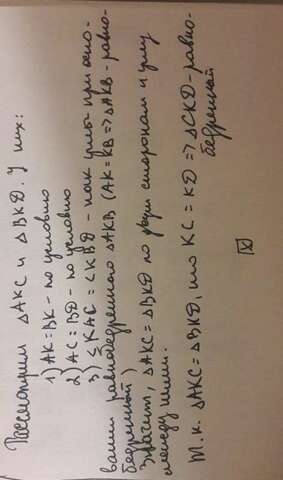 Рассмотрим ΔAKC и ΔBKD. У них:
1) AK=BK - по условию
2) AC=BD - по условию
3) ∠KAC=∠KBD - как углы при осно-
вании равнобедренного ΔAKB (AK=KB=>ΔAKB-равно-
бедренный)
Значит, ΔAKC=ΔBKD по двум сторонам и углу
между ними.
Т.к. ΔAKC=ΔBKD, то KC=KD=>ΔCKD-равно-
бедренный